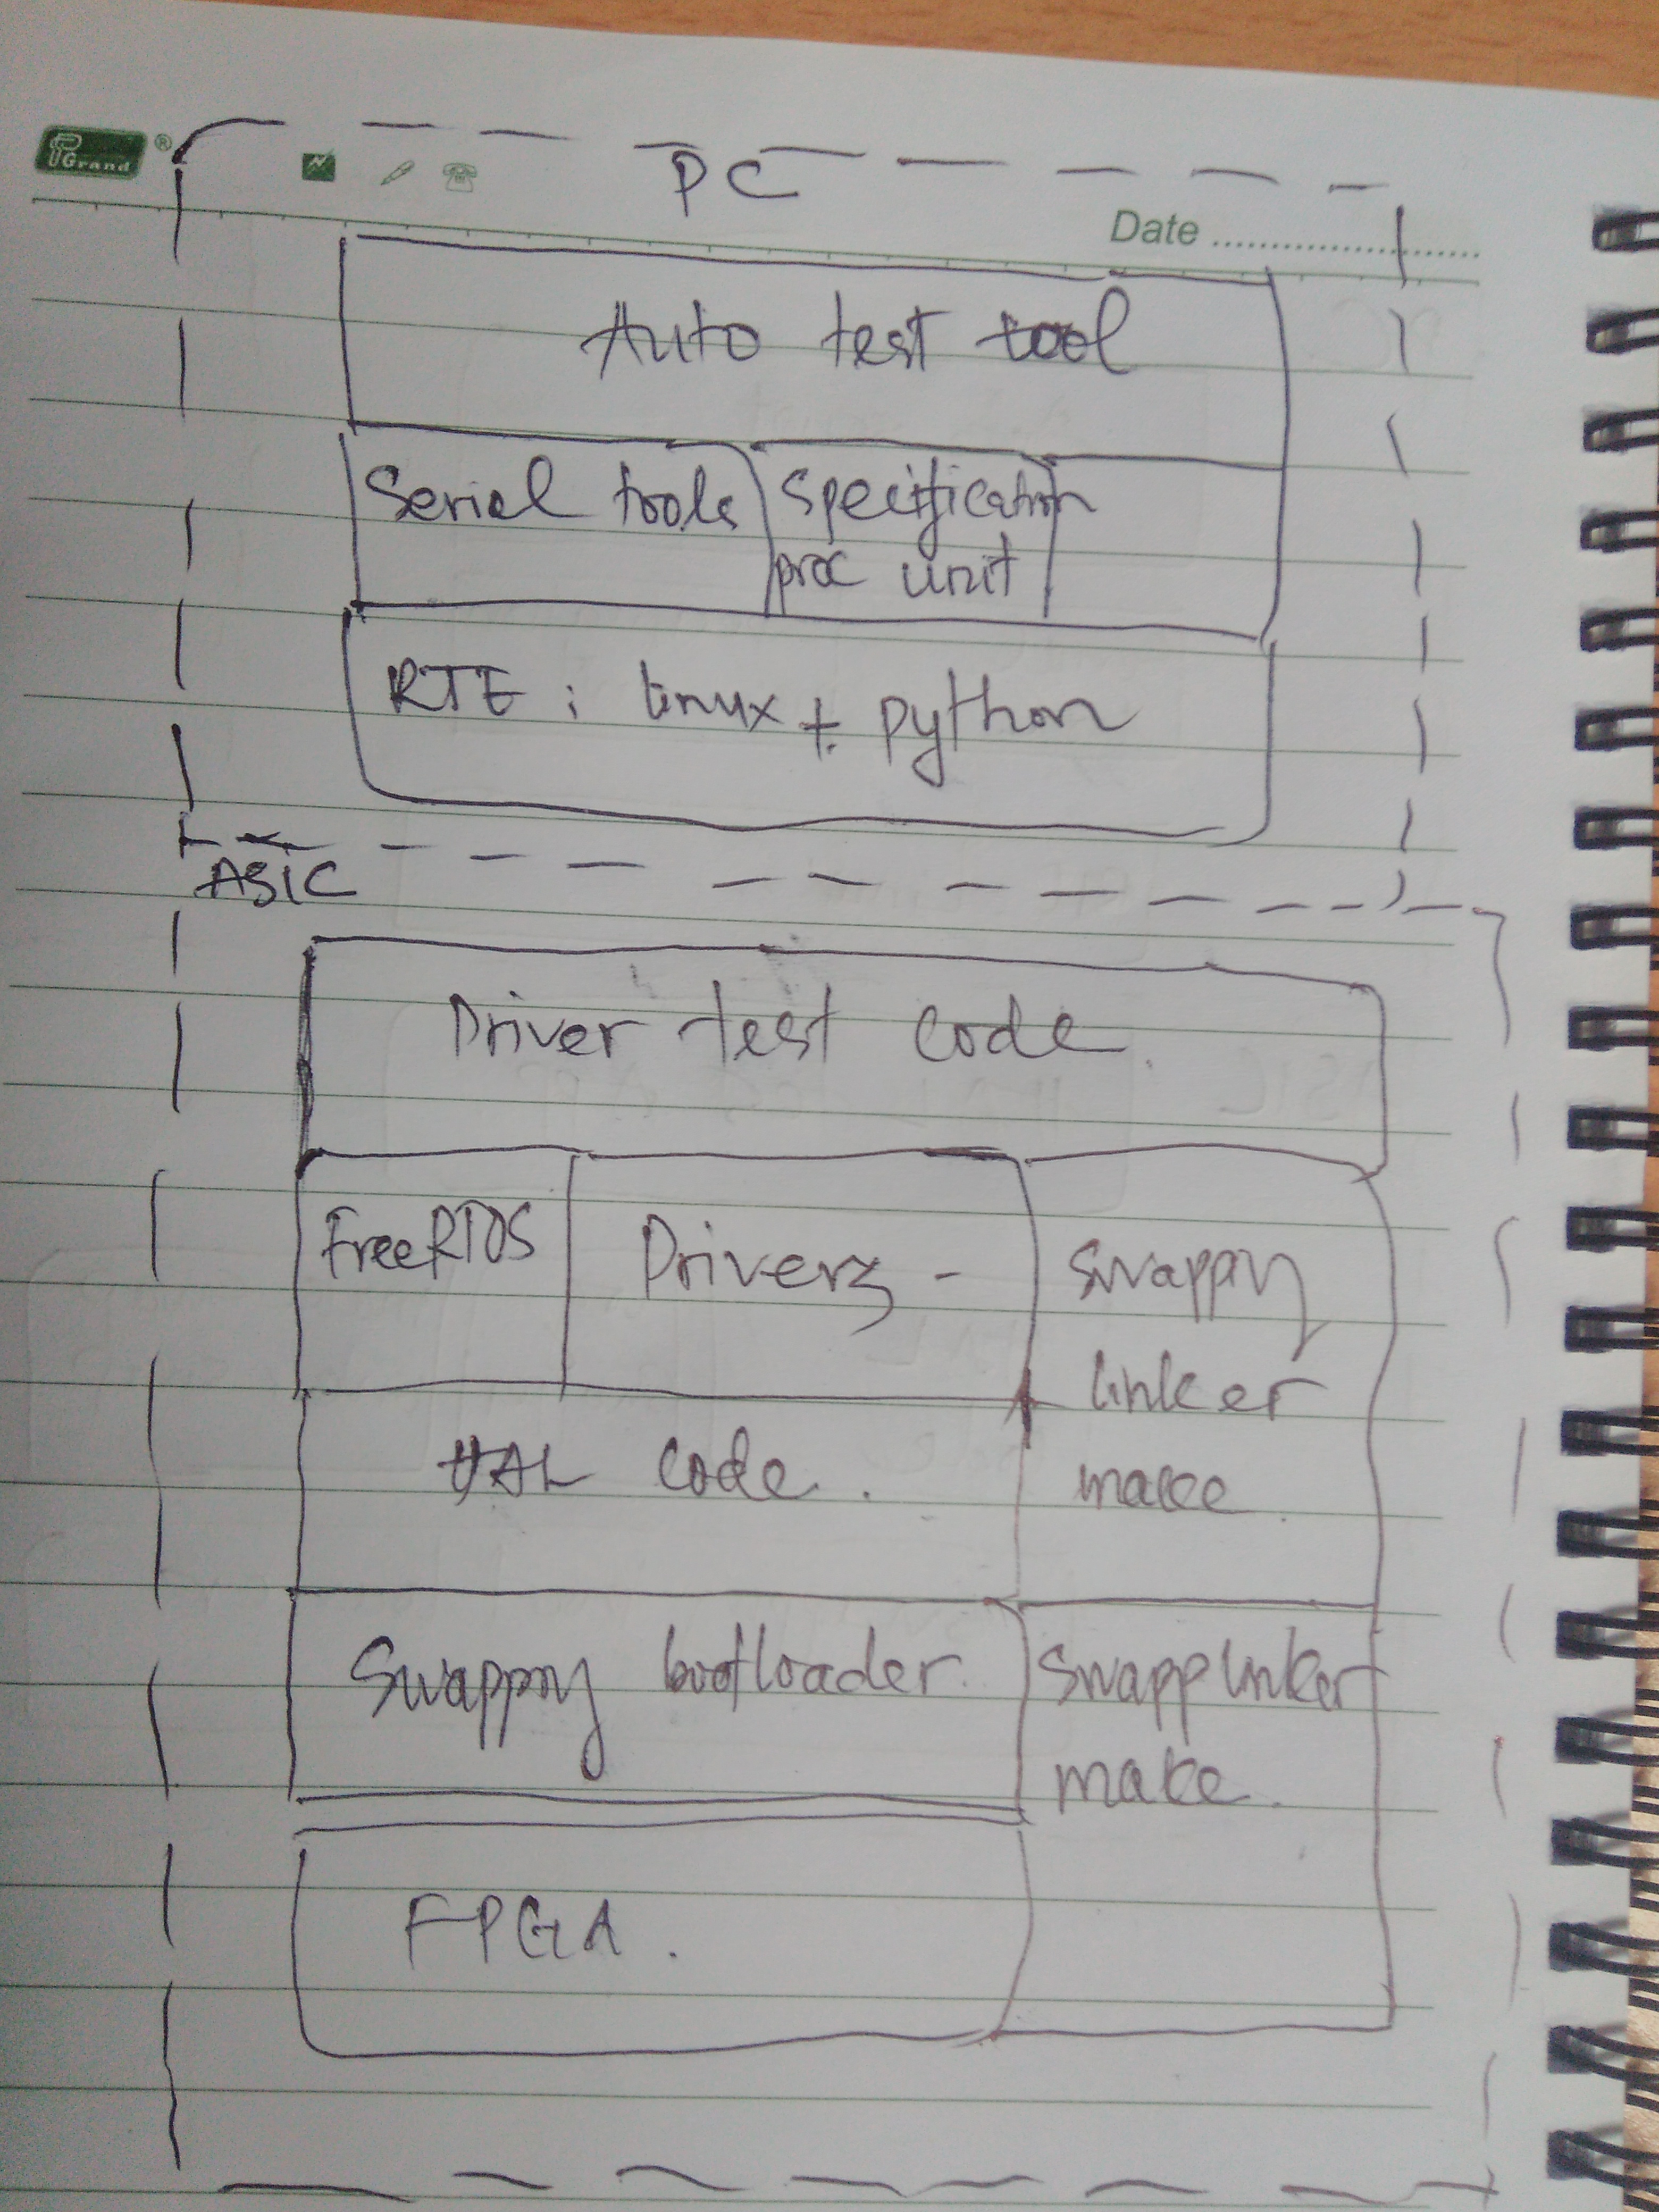 PGrand ®
PC
Date
Auto test tool
Serial tools
Specification
proc unit
RTE : linux + python
ASIC
Driver test code.
FreeRTOS
Drivers -
Swappy
linker
make
HAL code.
Swappy bootloader.
Swapp linker
make.
FPGA.